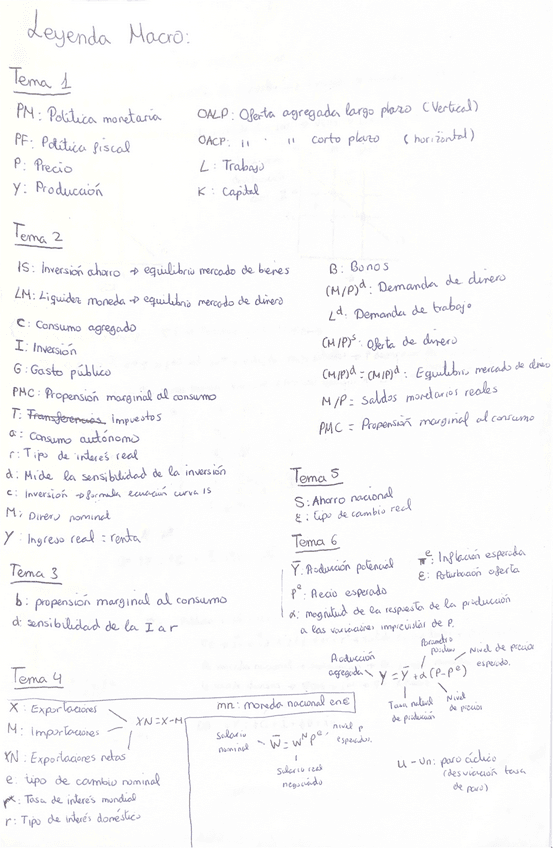 Leyenda Macro:
Tema 1
PM: Política monetaria
PF: Política fiscal
P: Precio
Y: Producción
OALP: Oferta agregada largo plazo (Vertical)
OACP: " " " corto plazo (horizontal)
L: Trabajo
K: Capital
Tema 2
IS: Inversión ahorro → equilibrio mercado de bienes
LM: Liquidez moneda → equilibrio mercado de dinero
C: Consumo agregado
I: Inversión
G: Gasto público
PMC: Propensión marginal al consumo
T: Transferencias impuestos
a: Consumo autónomo
r: Tipo de interés real
d: Mide la sensibilidad de la inversión
c: Inversión → formula ecuación curva IS
M: Dinero nominal
Y: Ingreso real = renta
B: Bonos
(M/P)^d: Demanda de dinero
L^d: Demanda de trabajo
(M/P)^s: Oferta de dinero
(M/P)^d = (M/P)^d: Equilibrio mercado de dinero
M/P = Saldos monetarios reales
PMC = Propensión marginal al consumo
Tema 3
b: propensión marginal al consumo
d: sensibilidad de la I a r
Tema 5
S: Ahorro nacional
ε: tipo de cambio real
Tema 6
Ȳ: Producción potencial
P^e: Precio esperado
α: magnitud de la respuesta de la producción
a las variaciones imprevistas de P.
π^e: Inflación esperada
ε: Perturbación oferta
Producción agregada
Y = Ȳ + α(P-P^e)
Nivel de precios esperado.
Tasa natural de producción
Nivel de precios
Tema 4
X: Exportaciones
M: Importaciones
XN = X-M
XN: Exportaciones netas
e: tipo de cambio nominal
r*: Tasa de interés mundial
r: Tipo de interés doméstico
mn: moneda nacional en €
Salario nominal
W̄ = w^N P^e
nivel P esperados.
Salario real negociado
u - un: paro cíclico
(desviación tasa
de paro)